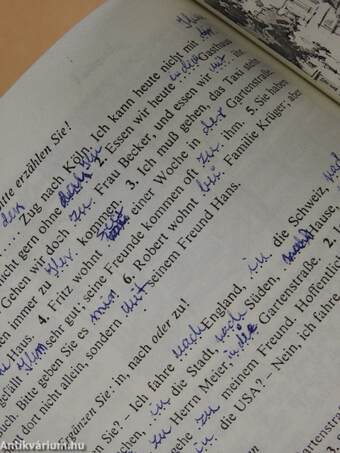 itte erzählen Sie!
den Zug nach Köln. Ich kann heute nicht mit
icht gern ohne 2. Essen wir heute in dem Gasthaus
Gehen wir doch zu Frau Becker, und essen wir mit
en immer zu Ihr. kommen. 3. Ich muß gehen, das Taxi steht
Haus. 4. Fritz wohnt einer Woche in der Gartenstraße.
gefällt Ihm sehr gut; seine Freunde kommen oft zu ihm. 5. Sie haben
uch. Bitte geben Sie es 6. Robert wohnt bei Familie Krüger; aber
dort nicht allein, sondern mit seinem Freund Hans.
gänzen Sie: in, nach oder zu!
n Sie? – Ich fahre nach England, in die Schweiz,
chen, in die Stadt, nach Süden, nach Hause,
zu Herrn Meier, in die Gartenstraße. 2.
gehe zu meinem Freund. Hoffentlich
in die USA? – Nein, ich fahre
Antikvárium.hu